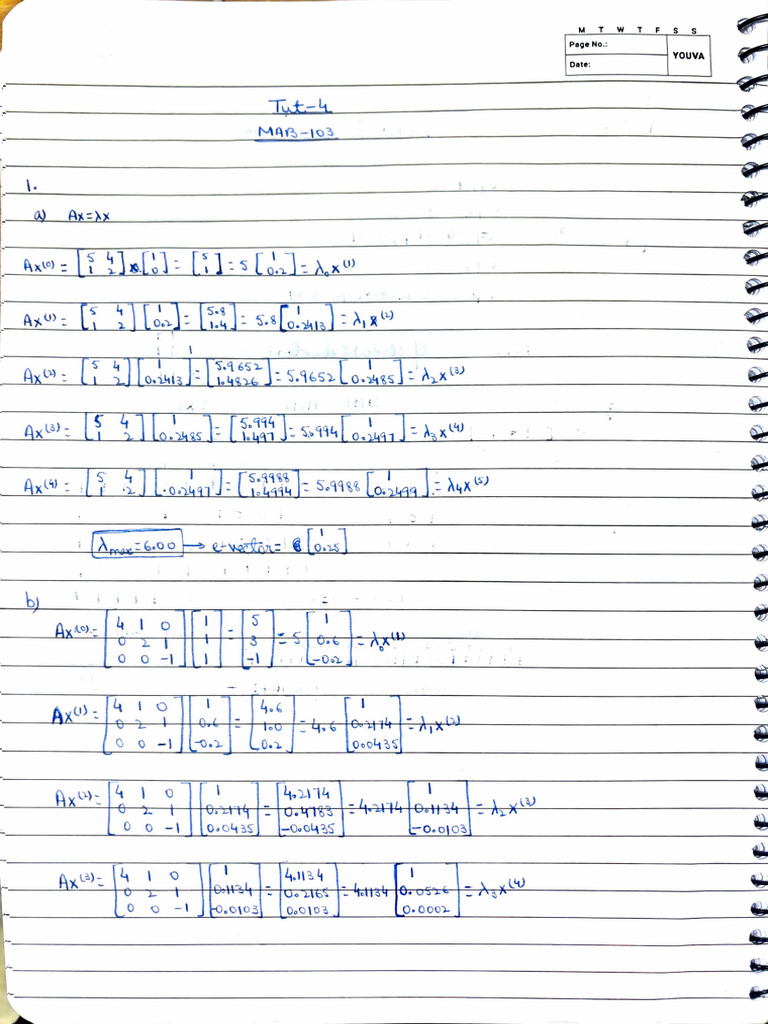 M T W T F S S
Page No.:
YOUVA
Date:
Tut-4
MAB-103
1.
a) Ax=λx
Ax⁽⁰⁾ = [5 4; 1 2] [1; 0] = [5; 1] = 5 [1; 0.2] = λ₀x⁽¹⁾
Ax⁽¹⁾ = [5 4; 1 2] [1; 0.2] = [5.8; 1.4] = 5.8 [1; 0.2413] = λ₁x⁽²⁾
Ax⁽²⁾ = [5 4; 1 2] [1; 0.2413] = [5.9652; 1.4826] = 5.9652 [1; 0.2485] = λ₂x⁽³⁾
Ax⁽³⁾ = [5 4; 1 2] [1; 0.2485] = [5.994; 1.497] = 5.994 [1; 0.2497] = λ₃x⁽⁴⁾
Ax⁽⁴⁾ = [5 4; 1 2] [1; 0.2497] = [5.9988; 1.4994] = 5.9988 [1; 0.2499] = λ₄x⁽⁵⁾
λmax = 6.00 → e-vector = [1; 0.25]
b)
Ax⁽⁰⁾ = [4 1 0; 0 2 1; 0 0 -1] [1; 1; 1] = [5; 3; -1] = 5 [1; 0.6; -0.2] = λ₀x⁽¹⁾
Ax⁽¹⁾ = [4 1 0; 0 2 1; 0 0 -1] [1; 0.6; -0.2] = [4.6; 1.0; 0.2] = 4.6 [1; 0.2174; 0.0435] = λ₁x⁽²⁾
Ax⁽²⁾ = [4 1 0; 0 2 1; 0 0 -1] [1; 0.2174; 0.0435] = [4.2174; 0.4783; -0.0435] = 4.2174 [1; 0.1134; -0.0103] = λ₂x⁽³⁾
Ax⁽³⁾ = [4 1 0; 0 2 1; 0 0 -1] [1; 0.1134; -0.0103] = [4.1134; 0.2165; 0.0103] = 4.1134 [1; 0.0526; 0.0002] = λ₃x⁽⁴⁾